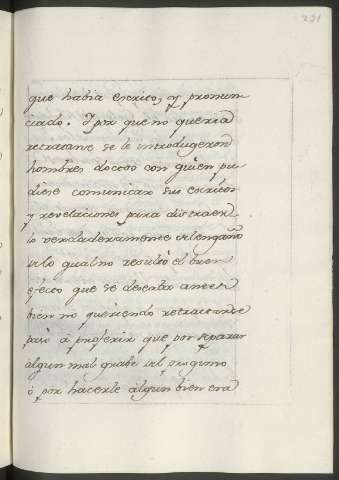 221
que habia escrito, y pronun
ciado. Y por que no queria
retractarse se le introdugeron
hombres doctos con quien pu
diese comunicar sus escritos
y revelaciones para distraerl
lo verdaderamente del engaño
de lo qual no resultò el buen
efecto que se deseaba antes
bien no queriendo retractarse
pasò à proferir que por reparar
algun mal grabe del progimo
ò por hacerle algun bien era